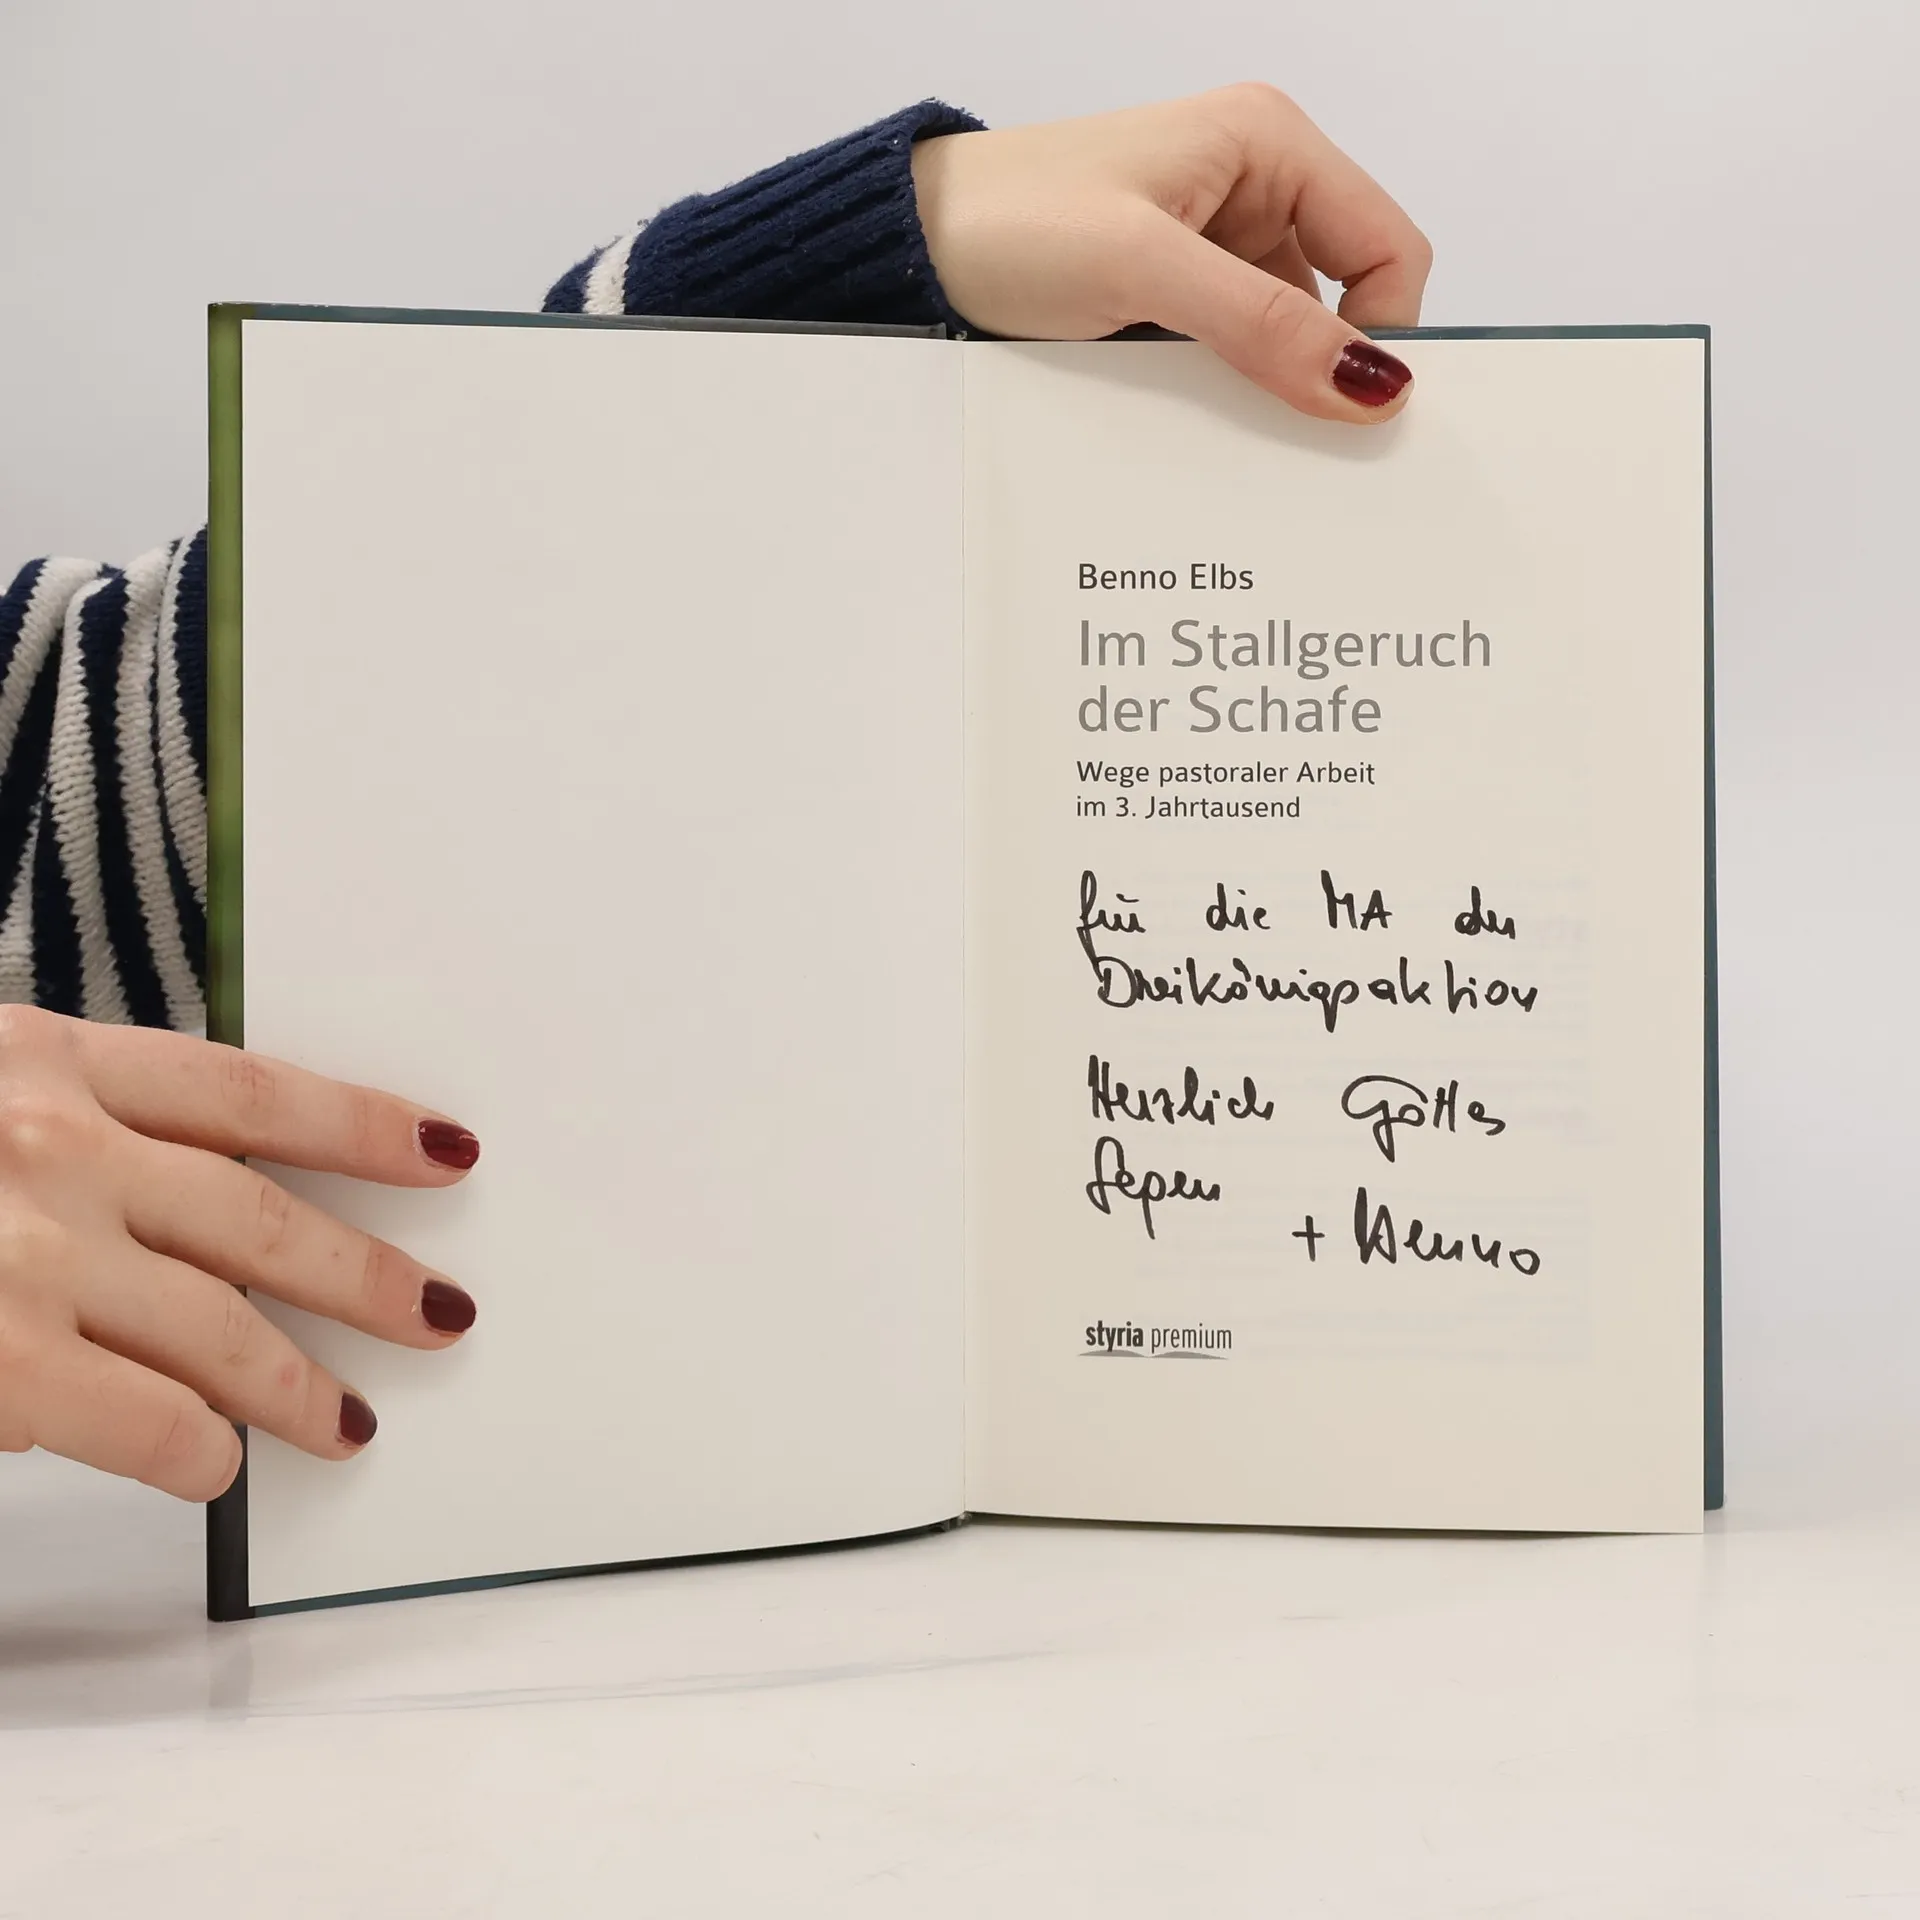 Benno Elbs
Im Stallgeruch
der Schafe
Wege pastoraler Arbeit
im 3. Jahrtausend
für die MA der
Dreikönigsaktion
Herzlich Gottes
Segen
+ Benno
styria premium